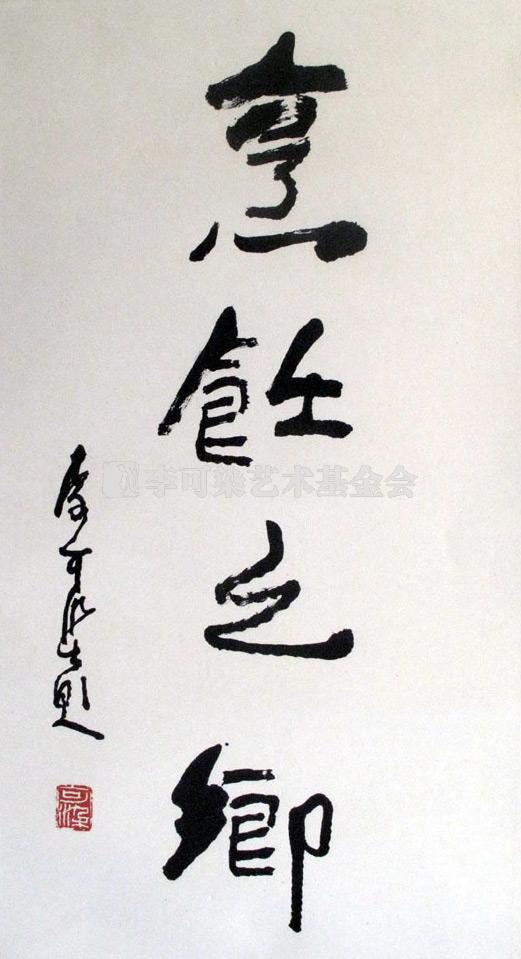 烹飪之鄉
李可染題
可染
李可染艺术基金会